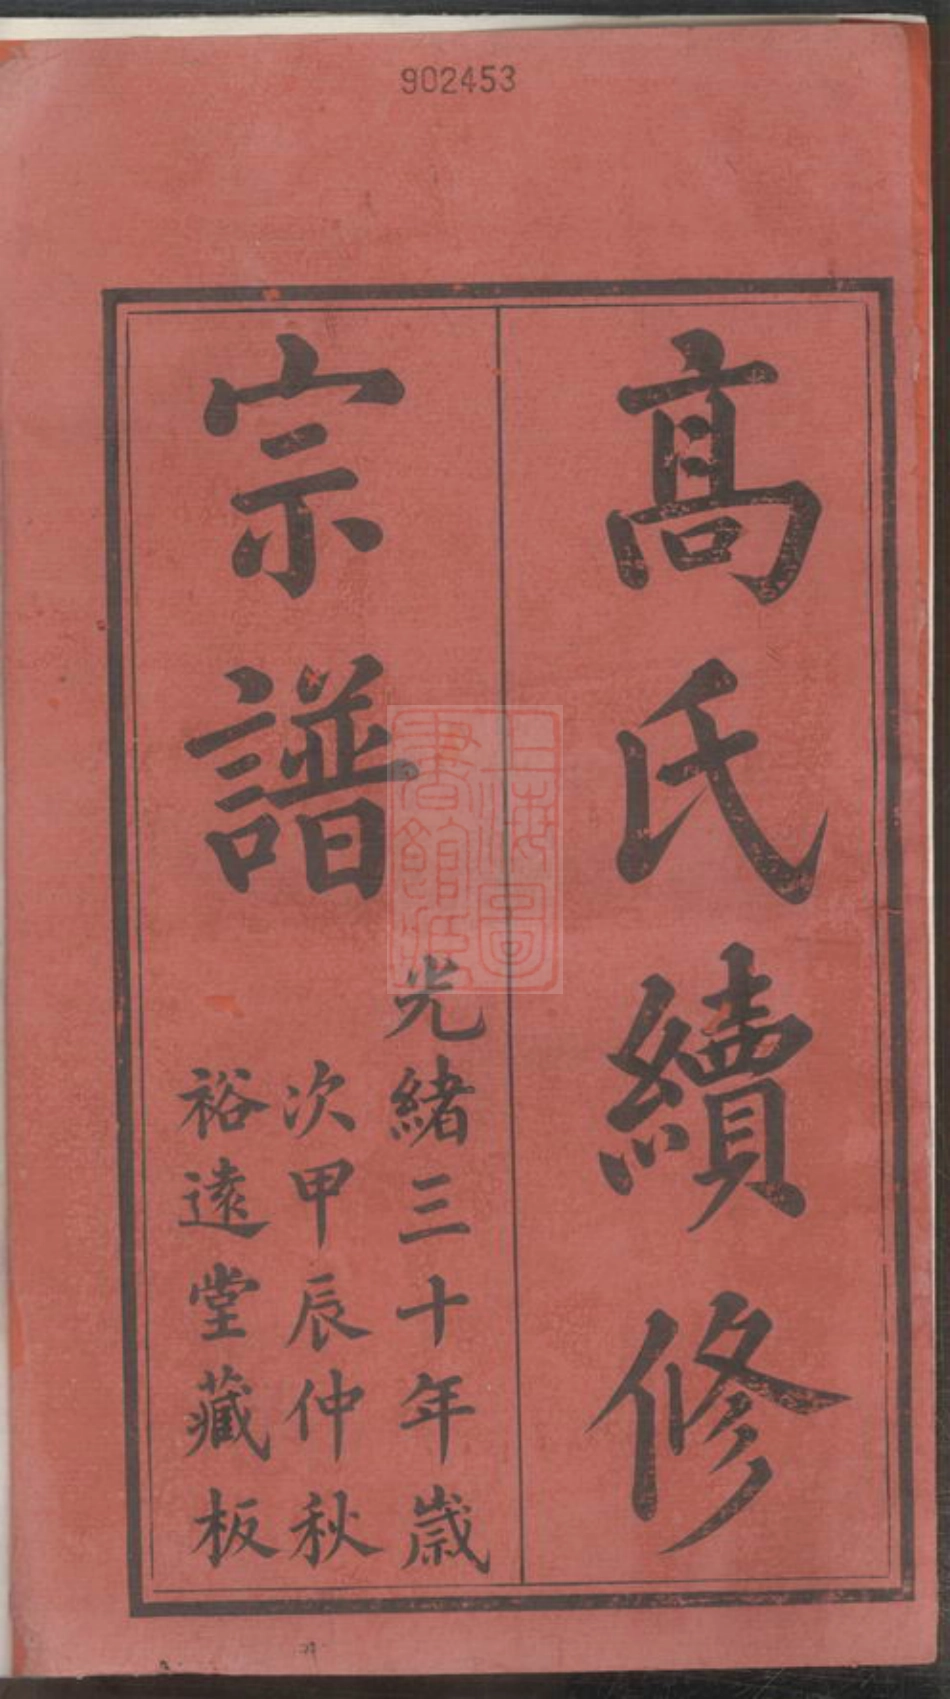 902453
髙氏續修
宗譜
光緒三十年歲
次甲辰仲秋
裕遠堂藏板
上海圖
書館藏